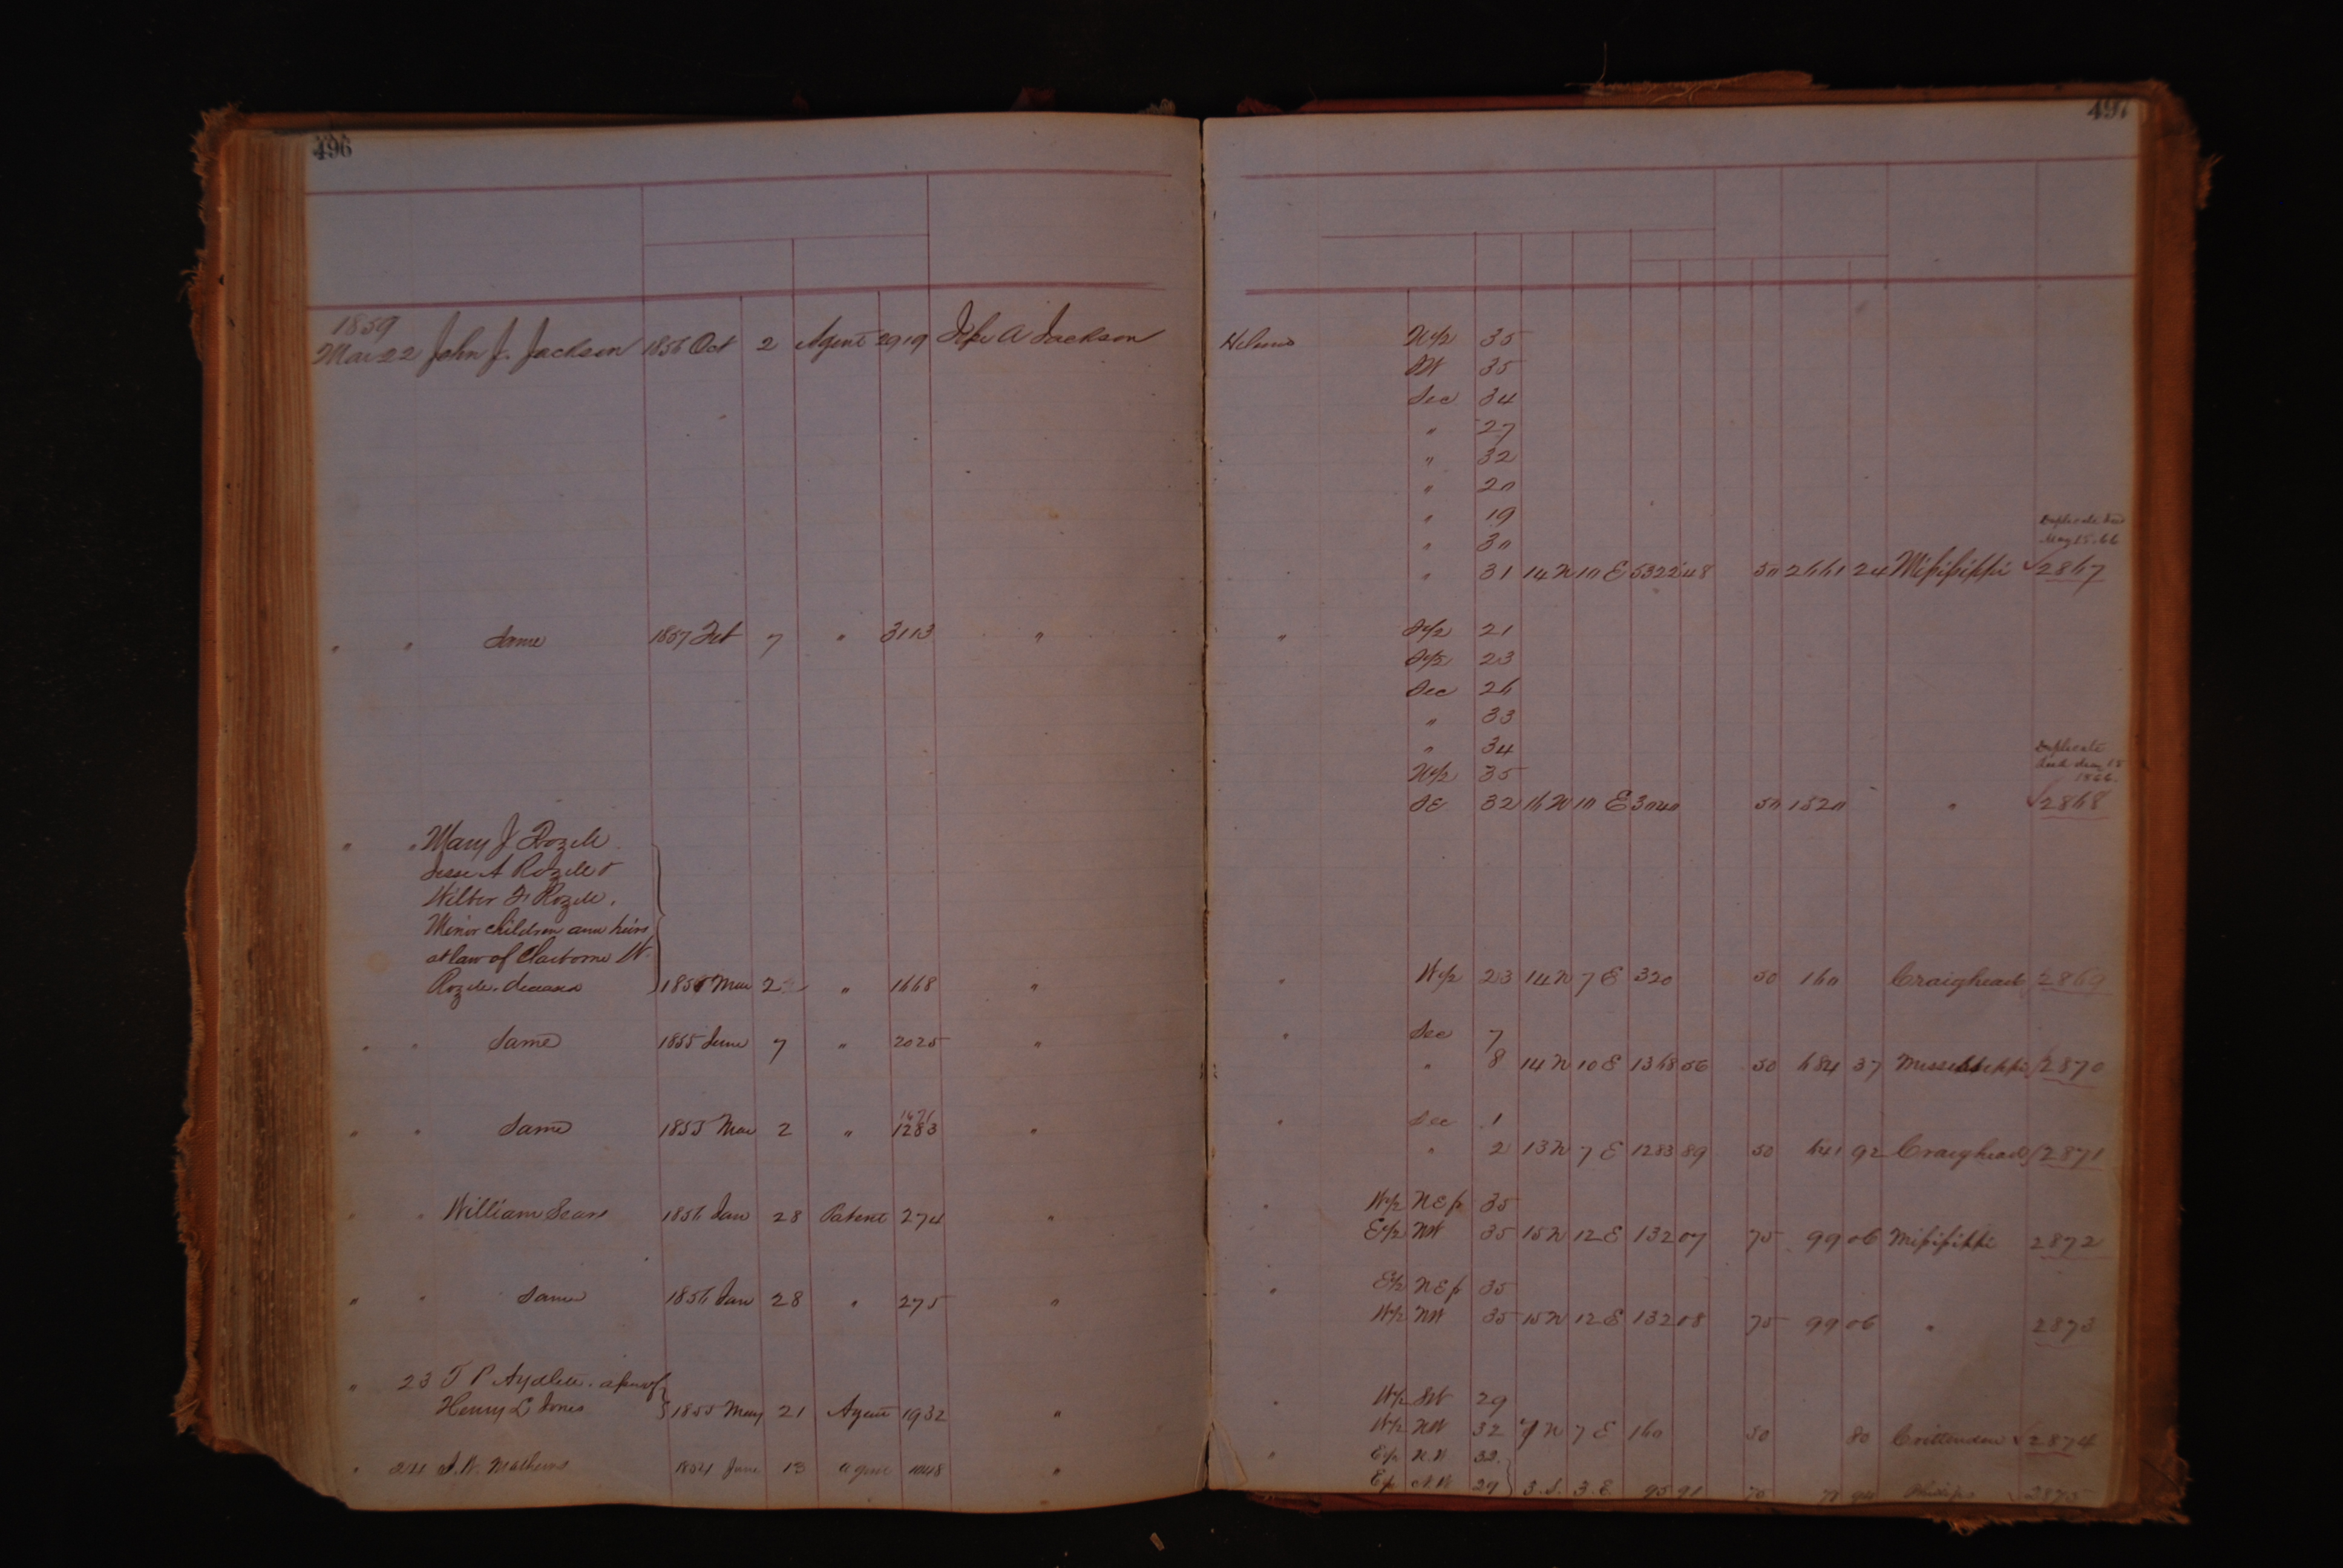 496
1859
Mar 22 John J. Jackson 1856 Oct 2 Agent 2919 A Jackson
" " Same 1857 Feb 7 " 3113 "
" " Mary J Rozell
Jesse A Rozell &
Wilber F Rozell,
Minor children and heirs
at law of Claiborne W.
Rozell, deceased 1855 Mar 2 " 1668 "
" " Same 1855 June 7 " 2025 "
1671
" " Same 1855 Mar 2 " 1283 "
" " William Sears 1856 Jan 28 Patent 274 "
" " Same 1856 Jan 28 " 275 "
" 23 T P Aydlett
Henry L Jones 1855 May 21 Agent 1932 "
" 24 Mathews 1854 June 13 agent 1048 "
497
Helena N1/2 35
SW 35
Sec 34
" 27
" 32
" 20
" 19
" 30
Duplicate deed
May 15. 66
" 31 14 N 10 E 5322 48 50 2661 24 Missisippi 2867
" 21
23
Sec 26
" 33
" 34
N1/2 35
Duplicate
15
1866
SE 32 16 N 10 E 3040 50 1520 " 2868
" W1/2 23 14 N 7 E 320 50 160 Craighead 2869
" Sec 7
" 8 14 N 10 E 1368 56 50 684 37 2870
" Sec 1
" 2 13 N 7 E 1283 89 50 641 92 Craighead 2871
" W1/2 NE 35
E1/2 NW 35 15 N 12 E 132 07 75 99 06 Missisippi 2872
" E1/2 NE 35
W1/2 NW 35 15 N 12 E 132 08 75 99 06 " 2873
" W1/2 SW 29
W1/2 NW 32 7 N 7 E 160 50 80 Crittenden 2874
" 32
29 3 S. 3 E. 95 91 Phillips 2875